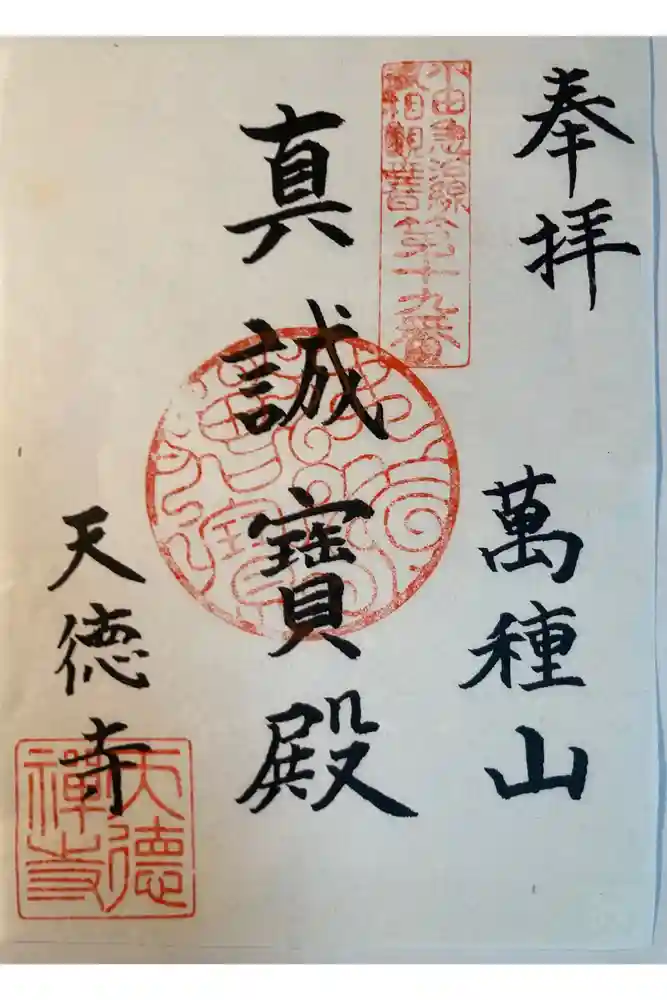 奉拝
萬種山
小田急沿線
武相観音
第十九番
真誠寶殿
天徳寺
天徳
禅寺